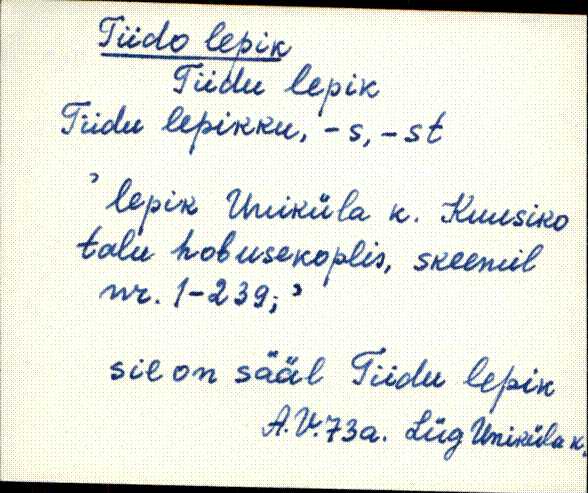 Tiido lepik
Tiidu lepik
Tiidu lepikku, -s, -st
'lepik Uniküla k. Kuusiko
talu hobusekoplis, skeemil
nr. 1-239;'
sie on sääl Tiidu lepik
A.V. 73a. Lüg Uniküla k.